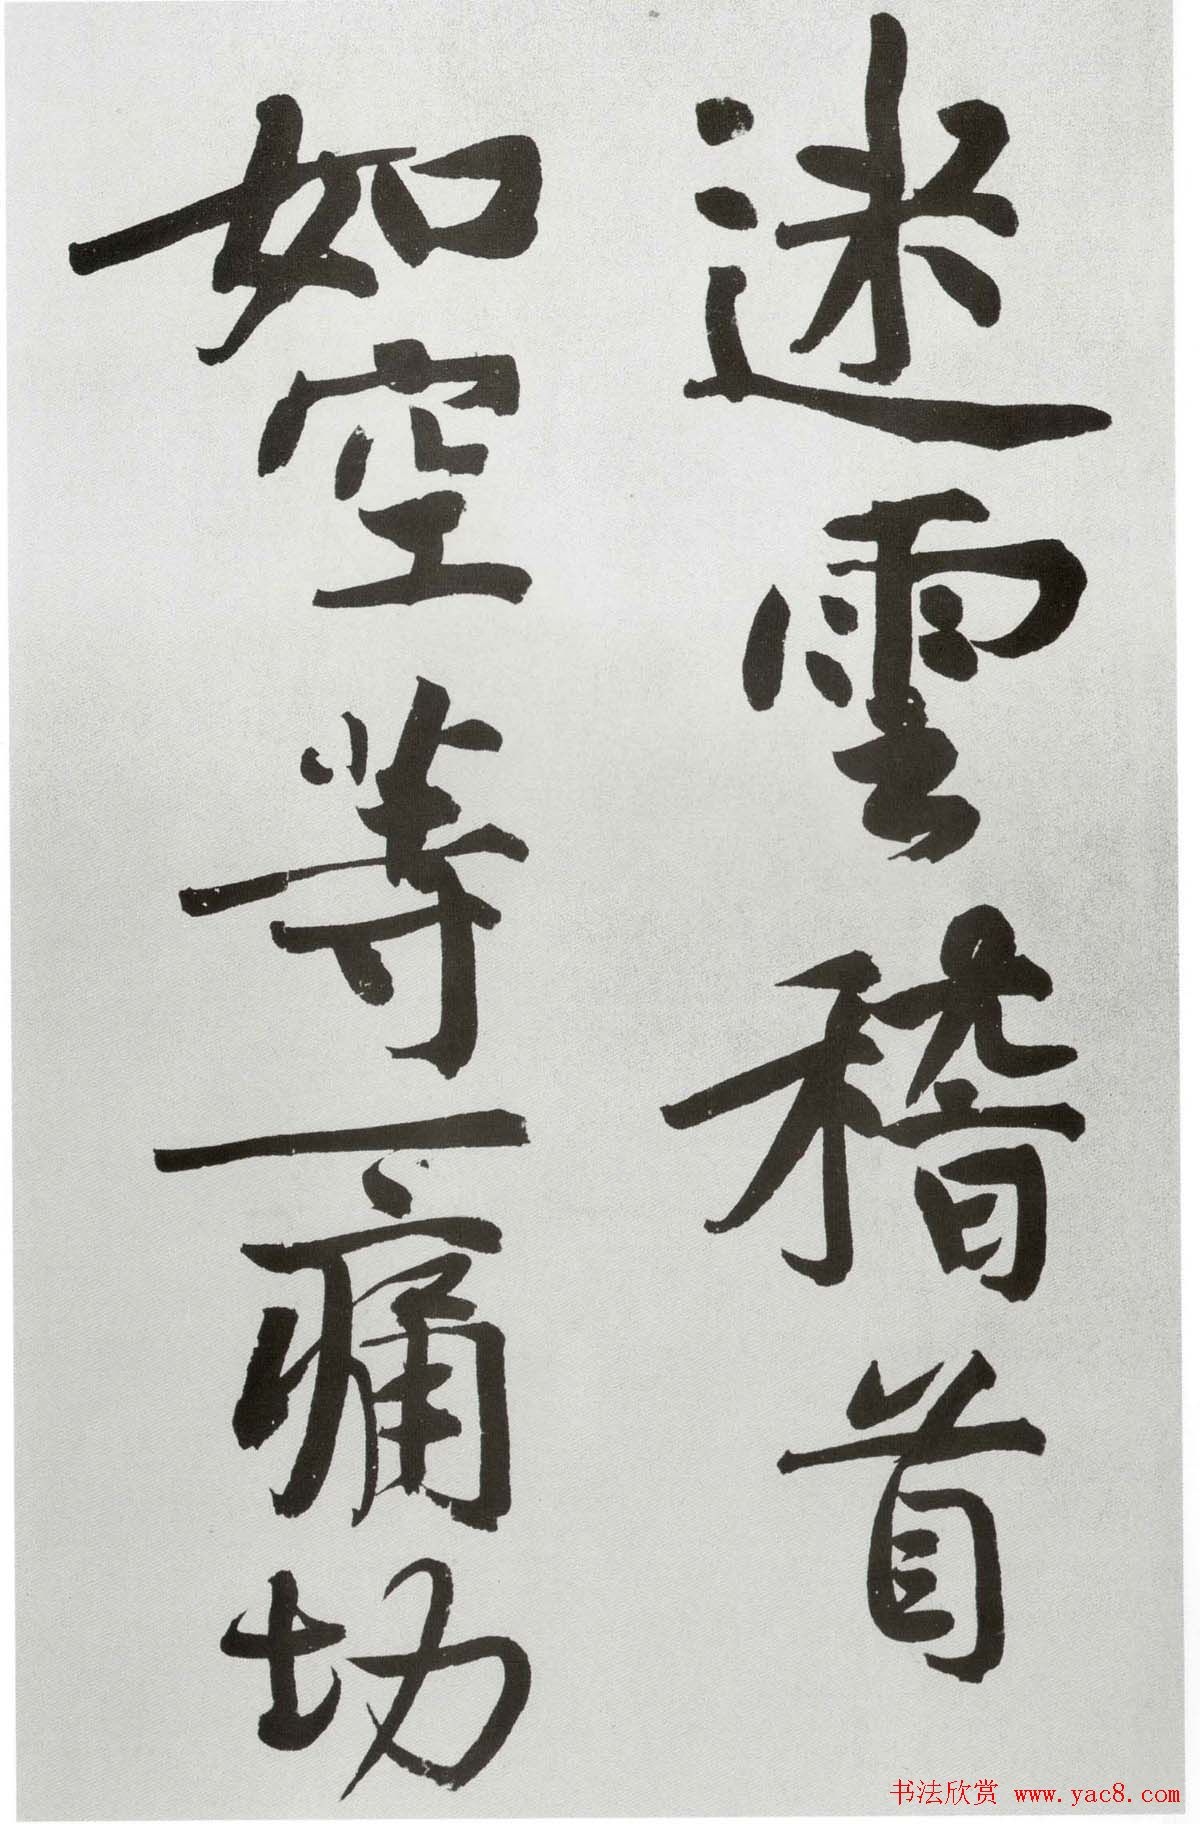 迷雲稽首
如空等一痛切
书法欣赏 www.yac8.com